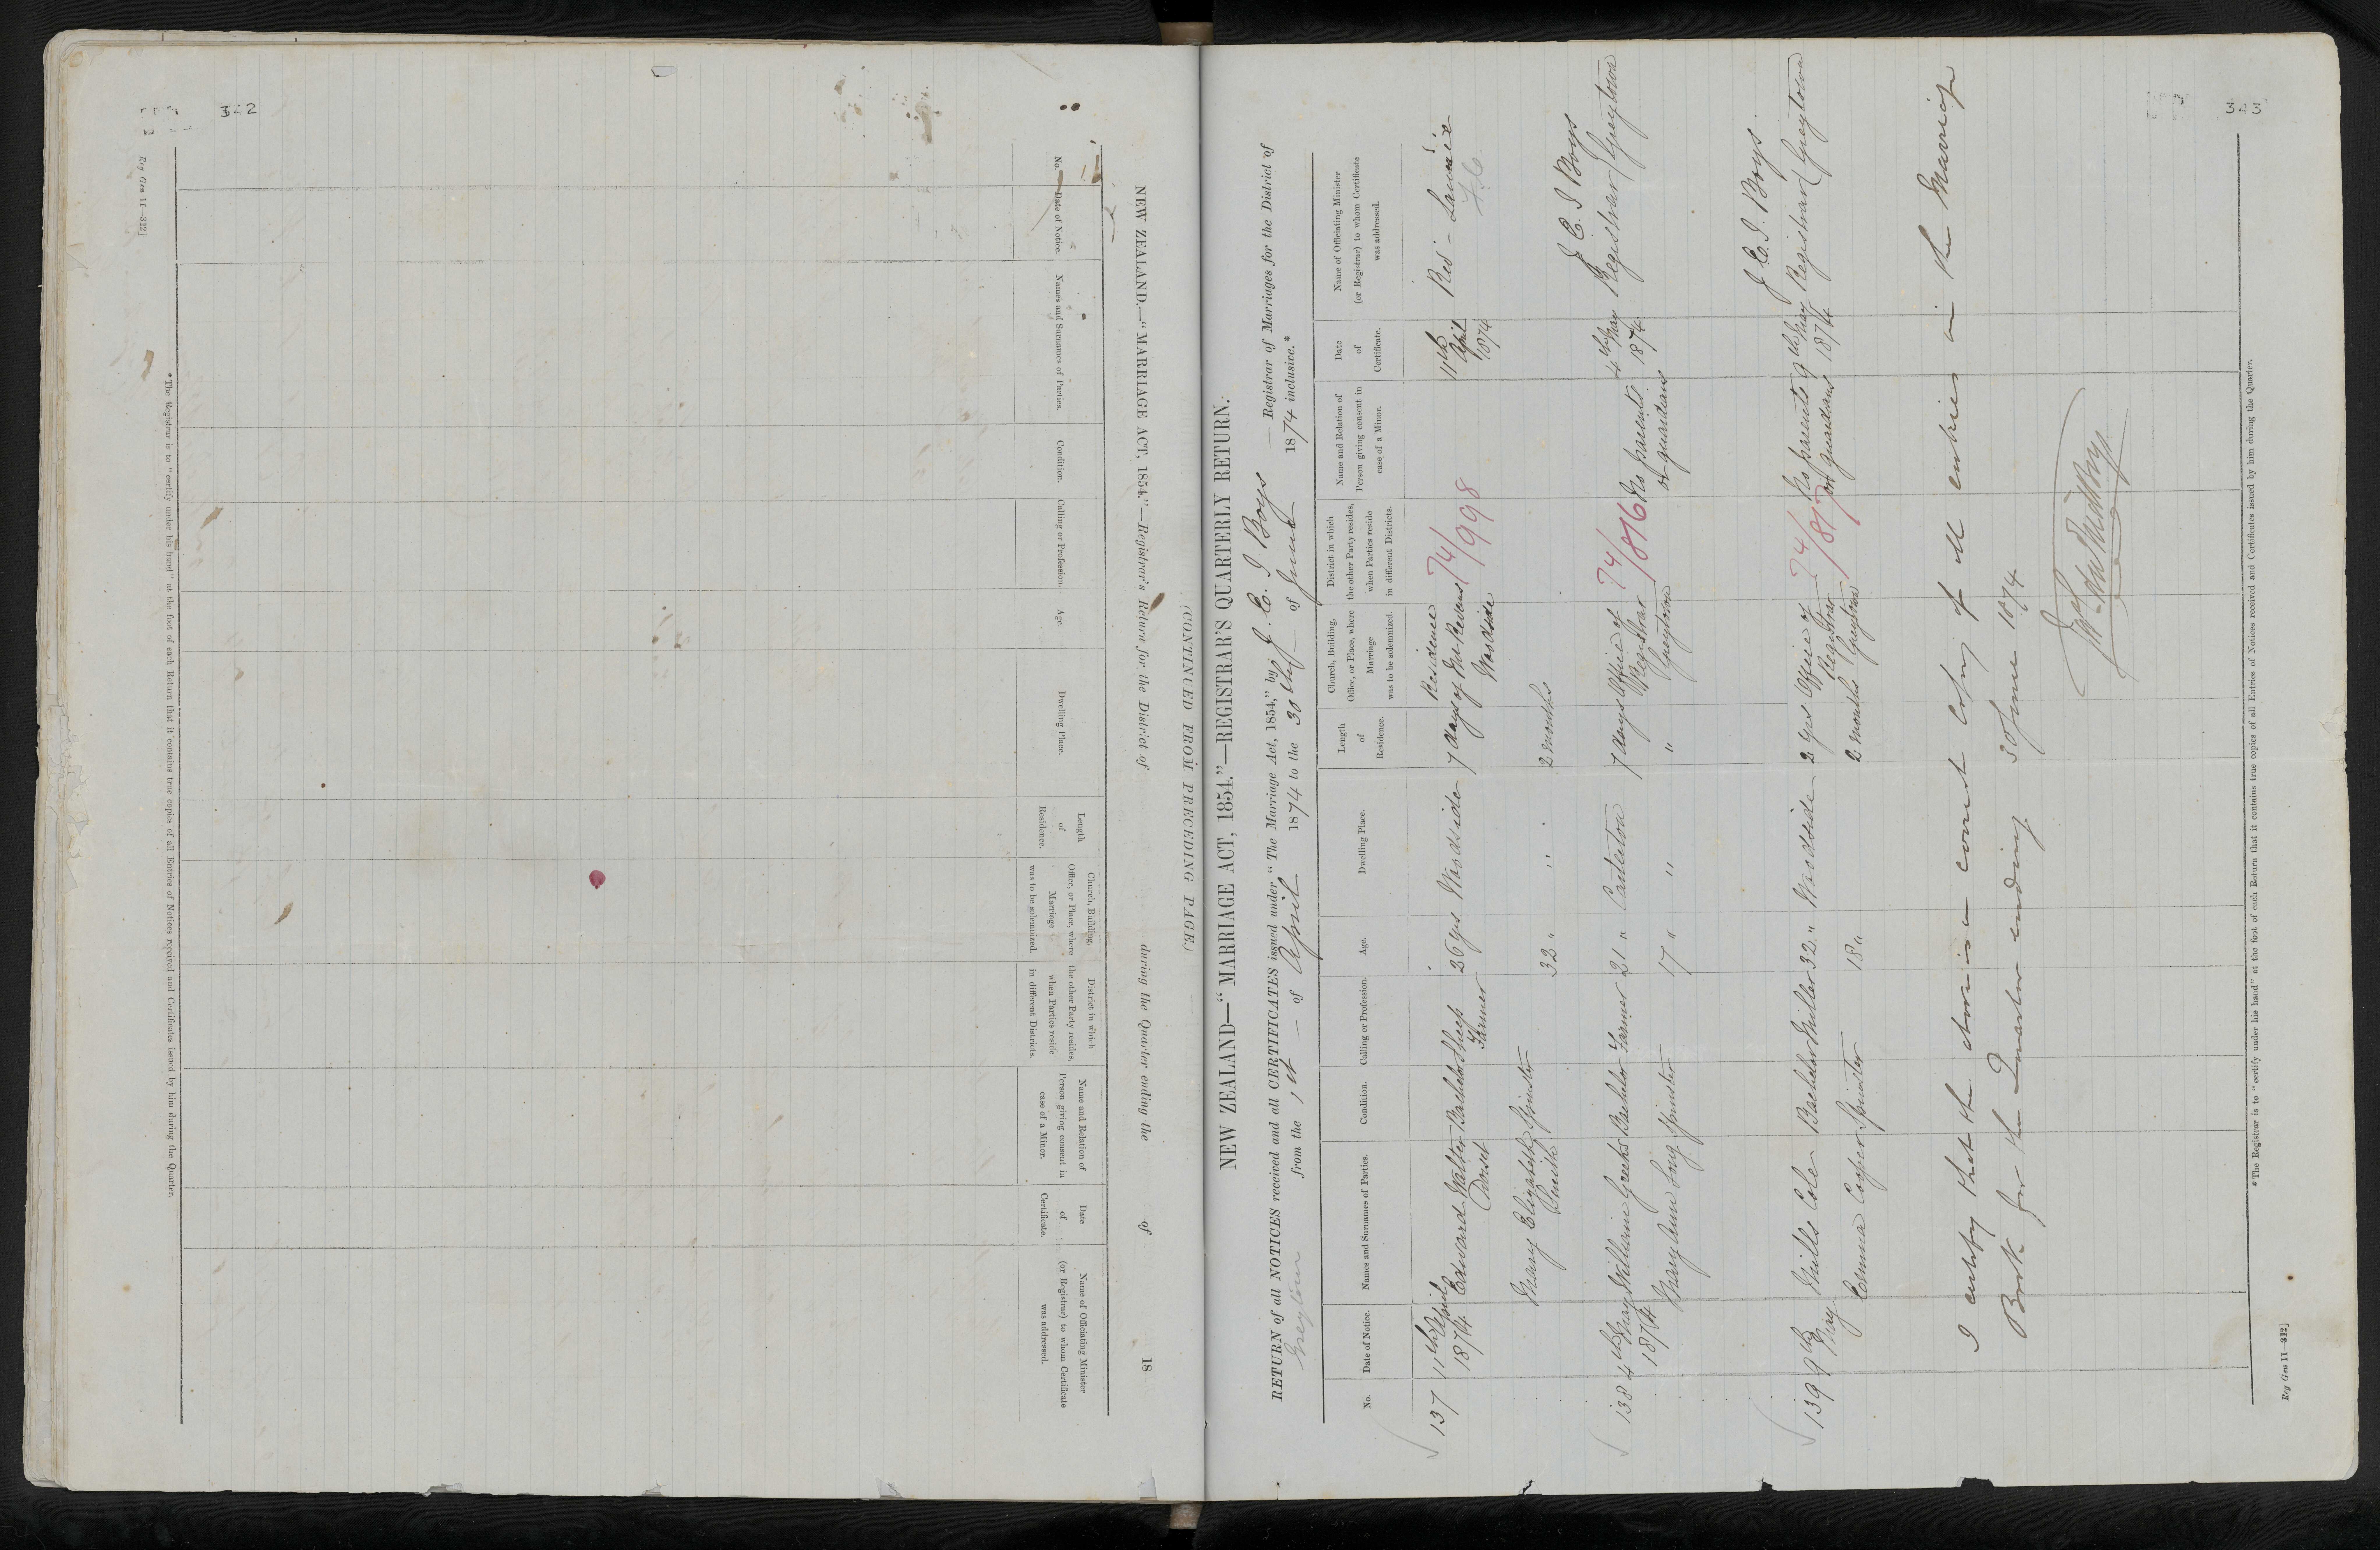 322
Reg Gen 11—312]
NEW ZEALAND.—"MARRIAGE ACT, 1854."—Registrar's Return for the District of during the Quarter ending the of 18
(CONTINUED FROM PRECEDING PAGE.)
No.
Date of Notice.
Names and Surnames of Parties.
Condition.
Calling or Profession.
Age.
Dwelling Place.
Length
of
Residence.
Church, Building,
Office, or Place, where
Marriage
was to be solemnized.
District in which
the other Party resides,
when Parties reside
in different Districts.
Name and Relation of
Person giving consent in
case of a Minor.
Date
of
Certificate.
Name of Officiating Minister
(or Registrar) to whom Certificate
was addressed.
*The Registrar is to "certify under his hand" at the foot of each Return that it contains true copies of all Entries of Notices received and Certificates issued by him during the Quarter.
NEW ZEALAND—"MARRIAGE ACT, 1854."—REGISTRAR'S QUARTERLY RETURN.
RETURN of all NOTICES received and all CERTIFICATES issued under "The Marriage Act, 1854," by J. C. I Boys — Registrar of Marriages for the District of
Greytown from the 1st — of April 1874 to the 30th — of June 1874 inclusive.*
No.
Date of Notice.
Names and Surnames of Parties.
Condition.
Calling or Profession.
Age.
Dwelling Place.
Length
of
Residence.
Church, Building,
Office, or Place, where
Marriage
was to be solemnized.
District in which
the other Party resides,
when Parties reside
in different Districts.
Name and Relation of
Person giving consent in
case of a Minor.
Date
of
Certificate.
Name of Officiating Minister
(or Registrar) to whom Certificate
was addressed.
137
11th April
1874
Edward Walter
Dorset
Bachelor
Sheep
Farmer
26 yrs
Woodside
7 days
Residence
of Mr
Woodside
74/998
11th
April
1874
Mary Elizabeth
Smith
Spinster
32 "
" "
2 months
138
4th May
1874
William
Bachelor
Farmer
21 "
Carterton
7 days
Office of
Registrar
Greytown
74/816
No parents
or guardians
4th May
1874
J C. I Boys
Registrar Greytown
Mary Anne Long
Spinster
17 "
"
"
139
9th
May
Mills Cole
Bachelor
Miller
32 "
Woodside
2 yrs
Office of
Registrar
Greytown
74/817
No parents
or guardians
9th May
1874
J. C. I. Boys
Registrar Greytown
Emma Casper
Spinster
18 "
2 months
I certify that the above is a correct copy of all entries in the Marriage
Book for the Quarter ending 30 June 1874
*The Registrar is to "certify under his hand" at the foot of each Return that it contains true copies of all Entries of Notices received and Certificates issued by him during the Quarter.
Reg Gen 11—312]
323